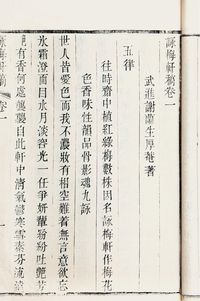 詠梅軒稿卷一
武進謝蘭生厚菴著
五律
往時齋中植紅綠梅數株因名詠梅軒作梅花
色香味性韻品骨影魂九詠
世人皆愛色而我不濃妝有相空難著無言意欲忘
冰霜澄面目水月淡容光一任爭妍輩紛紛吐艷芳
有香何處襲襲自此軒中清氣
詠梅軒稿 卷一